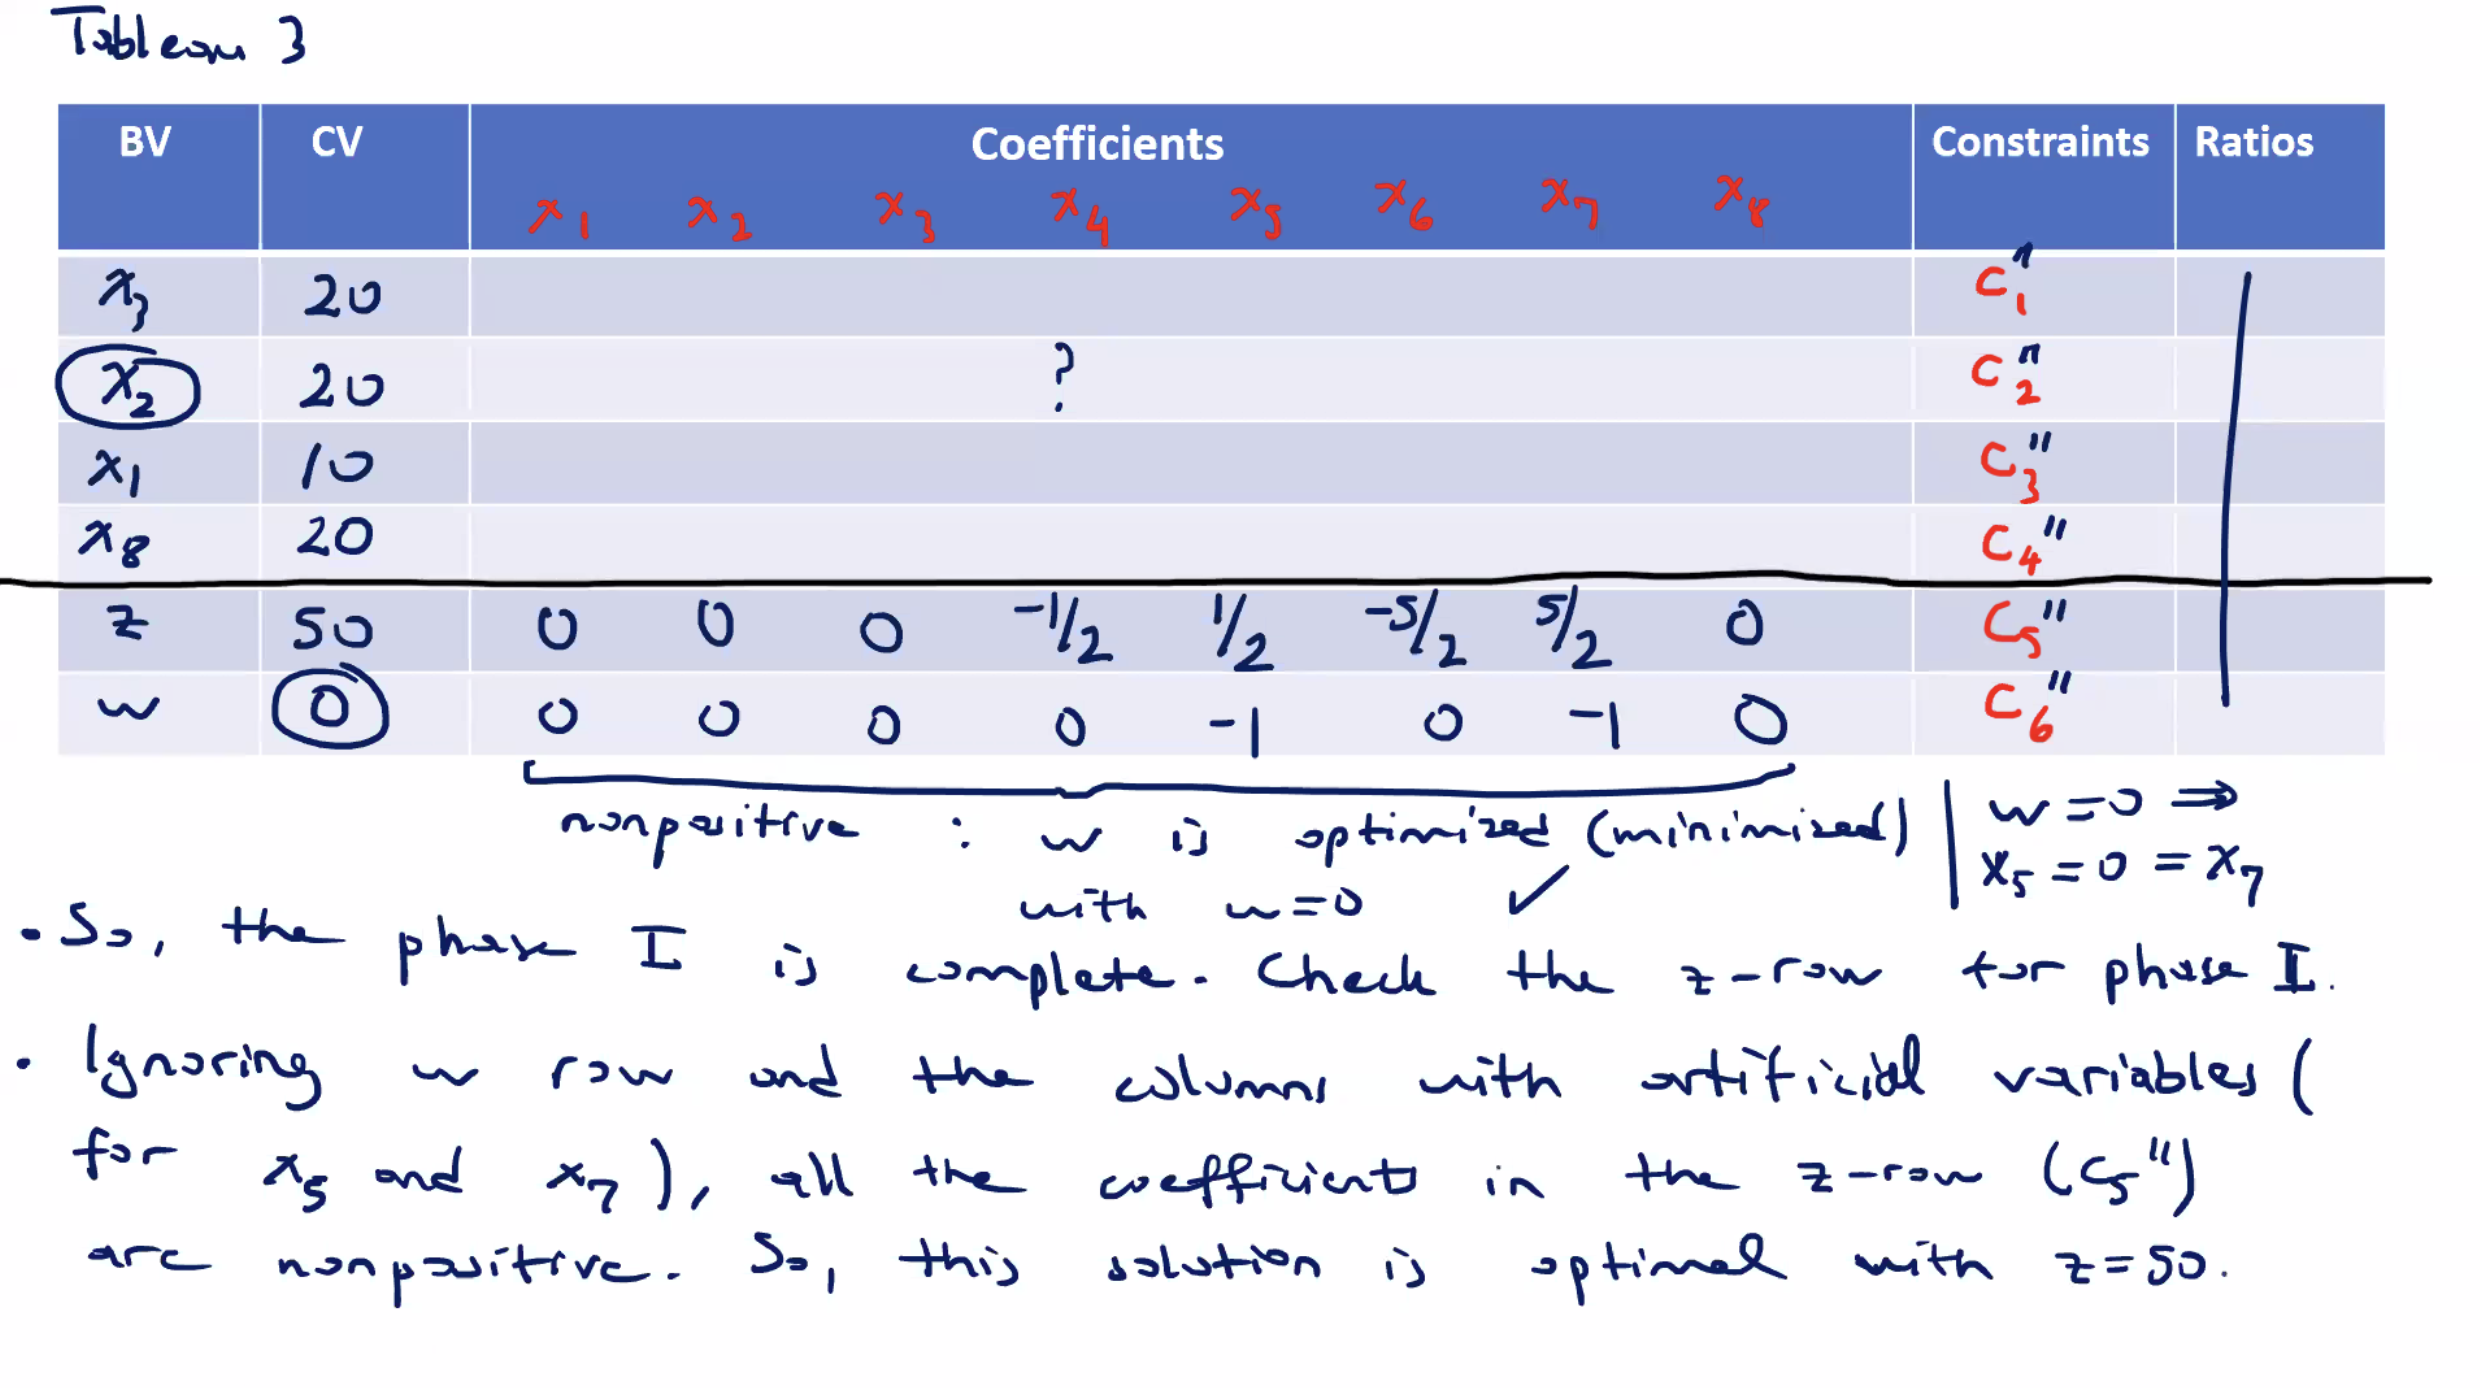 Tableau 3
BV CV Coefficients Constraints Ratios
x₁ x₂ x₃ x₄ x₅ x₆ x₇ x₈
x₃ 20 C₁"
x₂ 20 ? C₂"
x₁ 10 C₃"
x₈ 20 C₄"
z 50 0 0 0 -1/2 1/2 -5/2 5/2 0 C₅"
w 0 0 0 0 0 -1 0 -1 0 C₆"
nonpositive : w is optimized (minimized)
with w=0 ✓
w=0 ⇒
x₅=0=x₇
• So, the phase I is complete. Check the z-row for phase I.
• Ignoring w row and the columns with artificial variables (
for x₅ and x₇), all the coefficients in the z-row (C₅")
are nonpositive. So, this solution is optimal with z=50.